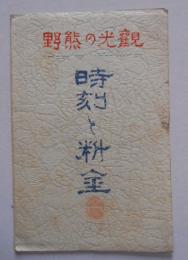 野熊の光觀
時刻と料金